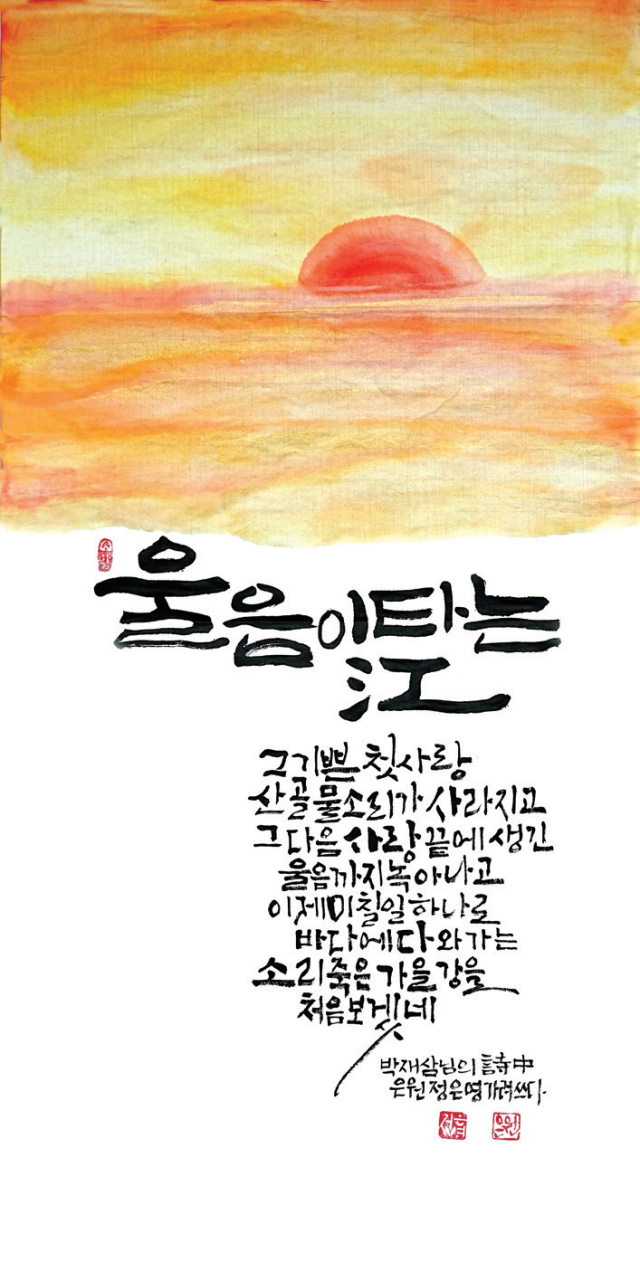 울음이 타는
江
그 기쁜 첫사랑
산골 물소리가 사라지고
그 다음 사랑 끝에 생긴
울음까지 녹아나고
이제 미칠 일 하나로
바다에 다 와가는
소리죽은 가을강을
처음 보겠네
박재삼님의 詩中
은원 정은영 가려쓰다.